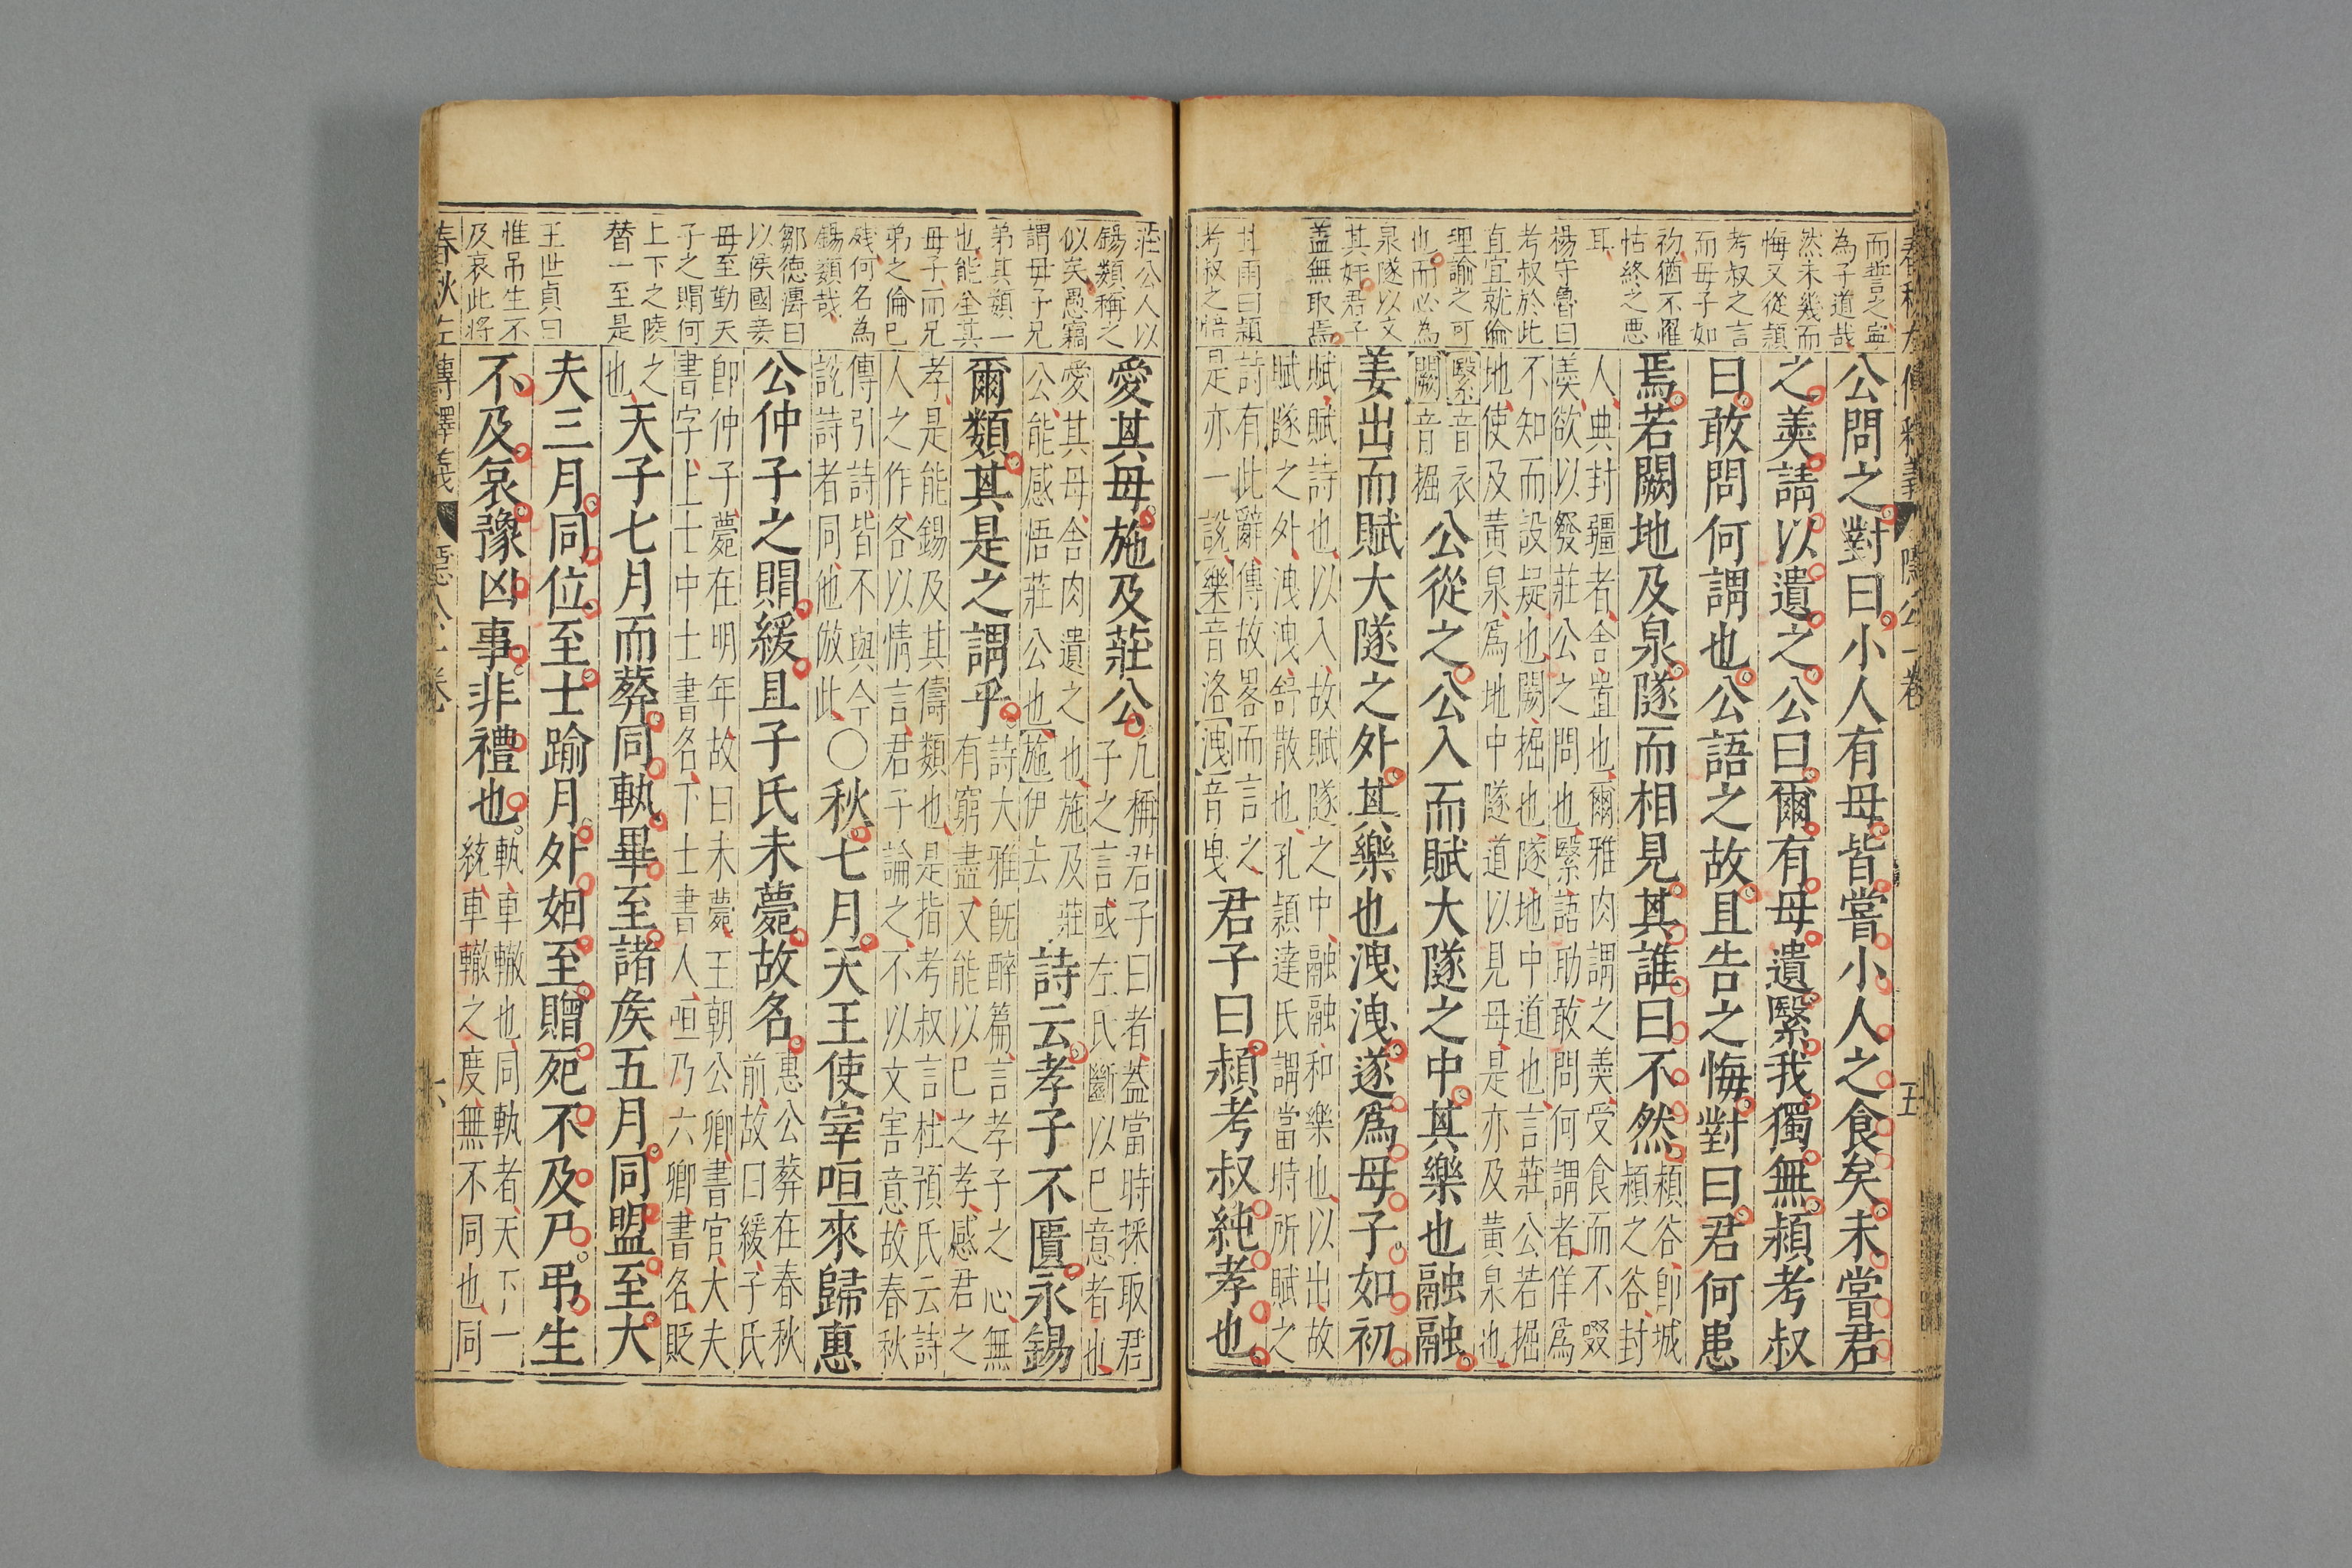 春秋左傳釋義 隱公一卷 五
而誓之寧
為子道哉
然未幾而
悔又從潁
考叔之言
而母子如
初猶不罹
怙終之惡
耳
楊守魯曰
考叔於此
直宜就倫
理諭之可
也而必為
泉隧以文
其奸君子
蓋無取焉
其雨曰潁
考叔之悟
公問之對曰小人有母皆嘗小人之食矣未嘗君
之羮請以遺之公曰爾有母遺繄我獨無潁考叔
曰敢問何謂也公語之故且告之悔對曰君何患
焉若闕地及泉隧而相見其誰曰不然
潁谷即城
潁之谷封
人典封疆者舍置也爾雅肉謂之羮受食而不啜
羮欲以發莊公之問也繄語助敢問何謂者佯爲
不知而設疑也闕掘也隧地中道也言莊公若掘
地使及黃泉爲地中隧道以見母是亦及黃泉也
繄音衣
闕音掘
公從之公入而賦大隧之中其樂也融融
姜出而賦大隧之外其樂也洩洩遂爲母子如初
賦賦詩也以入故賦隧之中融融和樂也以出故
賦隧之外洩洩舒散也孔潁達氏謂當時所賦之
詩有此辭傳故畧而言之
是亦一說樂音洛洩音曳
君子曰潁考叔純孝也
莊公人以
錫類稱之
似矣愚竊
謂母子兄
弟其類一
也能全其
母子而兄
弟之倫已
殘何名為
錫類哉
鄒德溥曰
以侯國妾
母至勤天
子之賵何
上下之陵
替一至是
王世貞曰
惟吊生不
及哀此將
愛其母施及莊公
凢稱君子曰者蓋當時採取君
子之言或左氏斷以已意者也
愛其母舍肉遺之也施及莊
公能感悟莊公也施伊去
詩云孝子不匱永錫
爾類其是之謂乎
詩大雅旣醉篇言孝子之心無
有窮盡又能以已之孝感君之
孝是能錫及其儔類也是指考叔言杜預氏云詩
人之作各以情言君子論之不以文害意故春秋
傳引詩皆不與今
說詩者同他倣此
〇秋七月天王使宰咺來歸惠
公仲子之賵緩且子氏未薨故名
惠公葬在春秋
前故曰緩子氏
卽仲子薨在明年故曰未薨王朝公卿書官大夫
書字上士中士書名下士書人咺乃六卿書名貶
之
也
天子七月而葬同軌畢至諸侯五月同盟至大
夫三月同位至士踰月外姻至贈死不及尸弔生
不及哀豫凶事非禮也
軌車轍也同軌者天下一
統車轍之度無不同也同
春秋左傳釋義 隱公一卷 六